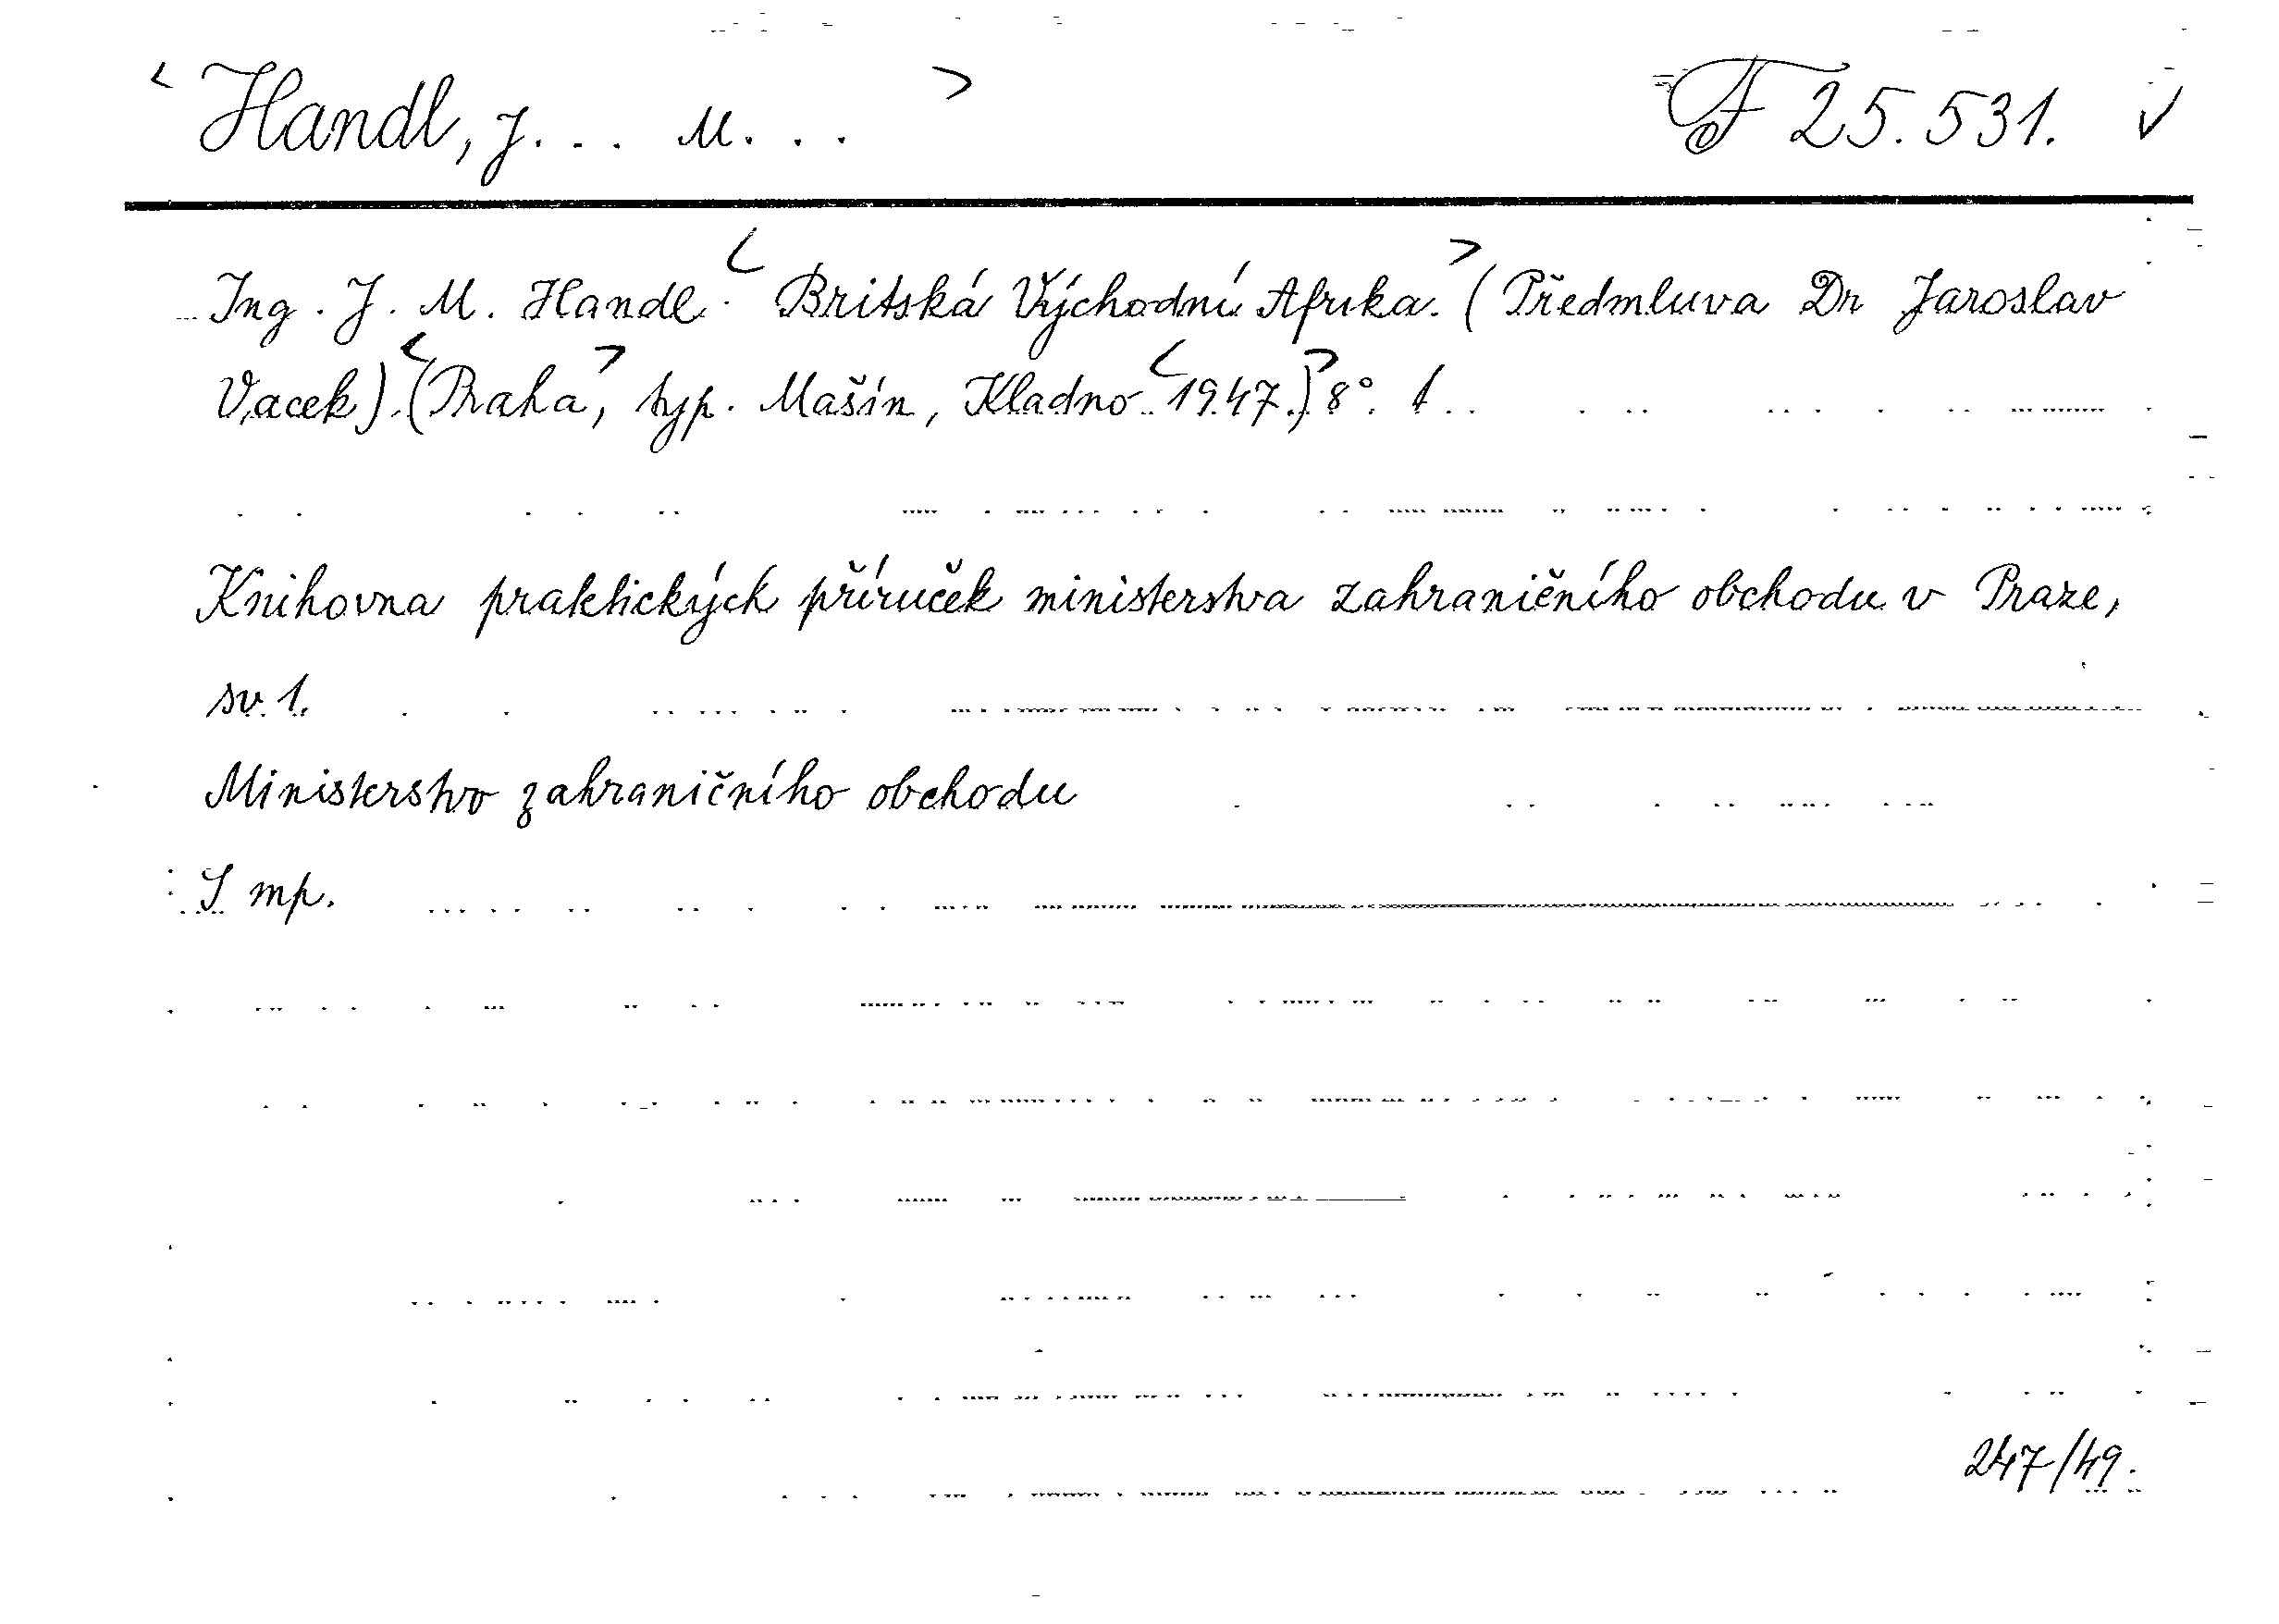 < Handl, J... M... > F 25.531. ✓
Ing. J. M. Handl. < Britská Východní Afrika. > (Předmluva Dr Jaroslav
Vacek). < (Praha >, typ. Mašín, Kladno < 1947.) > 8°.
Knihovna praktických příruček ministerstva zahraničního obchodu v Praze,
sv. 1.
Ministerstvo zahraničního obchodu
mp.
247/49.